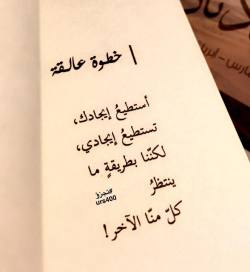 خطوة عالقة
أستطيعُ إيجادك،
تستطيعُ إيجادي،
لكنّنا بطريقةٍ ما
ينتظرُ
كلّ منّا الآخر!
urs400